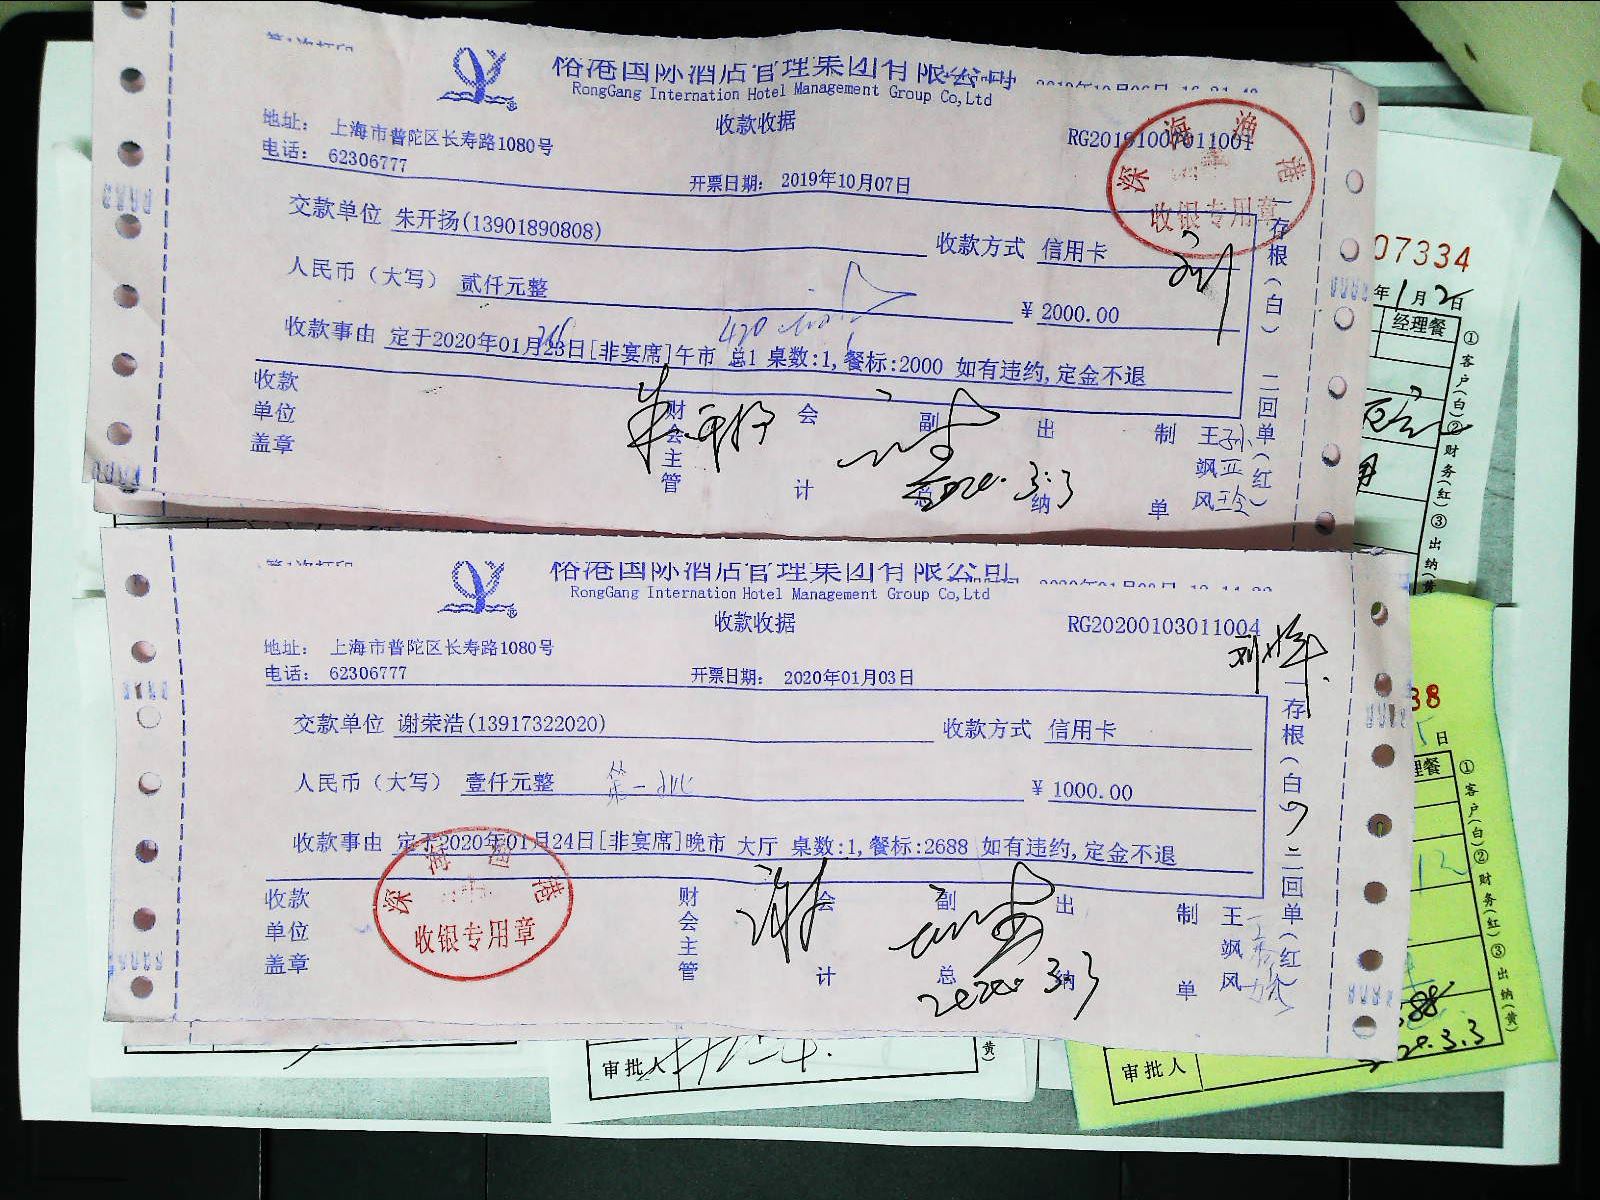 裕港国际酒店管理集团有限公司
RongGang Internation Hotel Management Group Co,Ltd
收款收据
地址： 上海市普陀区长寿路1080号
电话： 62306777
开票日期： 2019年10月07日
RG20191007011001
深海渔港
收银专用章
交款单位 朱开扬(13901890808)
收款方式 信用卡
人民币（大写） 贰仟元整
¥ 2000.00
收款事由 定于2020年01月23日[非宴席]午市 总1 桌数:1,餐标:2000 如有违约,定金不退
收款单位盖章
财会主管
会计
副总
出纳
制单
王飒风
2020.3.3
一存根(白)二回单(红)
裕港国际酒店管理集团有限公司
RongGang Internation Hotel Management Group Co,Ltd
收款收据
RG20200103011004
地址： 上海市普陀区长寿路1080号
电话： 62306777
开票日期： 2020年01月03日
交款单位 谢荣浩(13917322020)
收款方式 信用卡
人民币（大写） 壹仟元整
¥ 1000.00
收款事由 定于2020年01月24日[非宴席]晚市 大厅 桌数:1,餐标:2688 如有违约,定金不退
收款单位盖章
深海渔港
收银专用章
财会主管
会计
副总
出纳
制单
王飒风
2020.3.3
一存根(白)二回单(红)
07334
年1月2日
经理餐
①客户(白)②财务(红)③出纳(黄
38
日
理餐
①客户(白)②财务(红)③出纳(黄)
12
.88
3.3
审批人
黄)
审批人